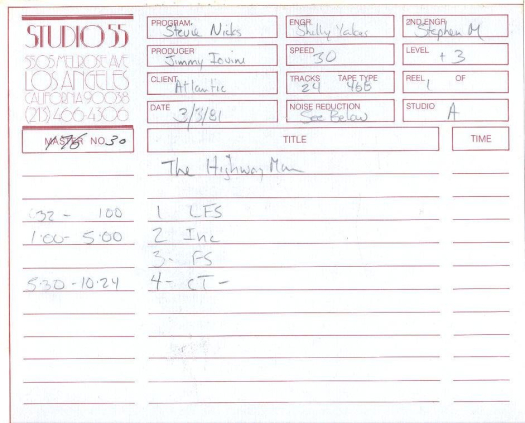 STUDIO 55
5505 MELROSE AVE
LOS ANGELES
CALIFORNIA 90038
(213) 466-4306
PROGRAM. Stevie Nicks
ENGR. Shelly Yakus
2ND ENGR. Stephen M
PRODUCER Jimmy Iovine
SPEED 30
LEVEL + 3
CLIENT Atlantic
TRACKS 24 TAPE TYPE 456
REEL 1 OF
DATE 3/3/81
NOISE REDUCTION See Below
STUDIO A
MASTER NO. 30
TITLE
TIME
The Highway Man
:32 - 1:00 1 LFS
1:00 - 5:00 2 Inc
3- FS
5:30 - 10:24 4- CT -